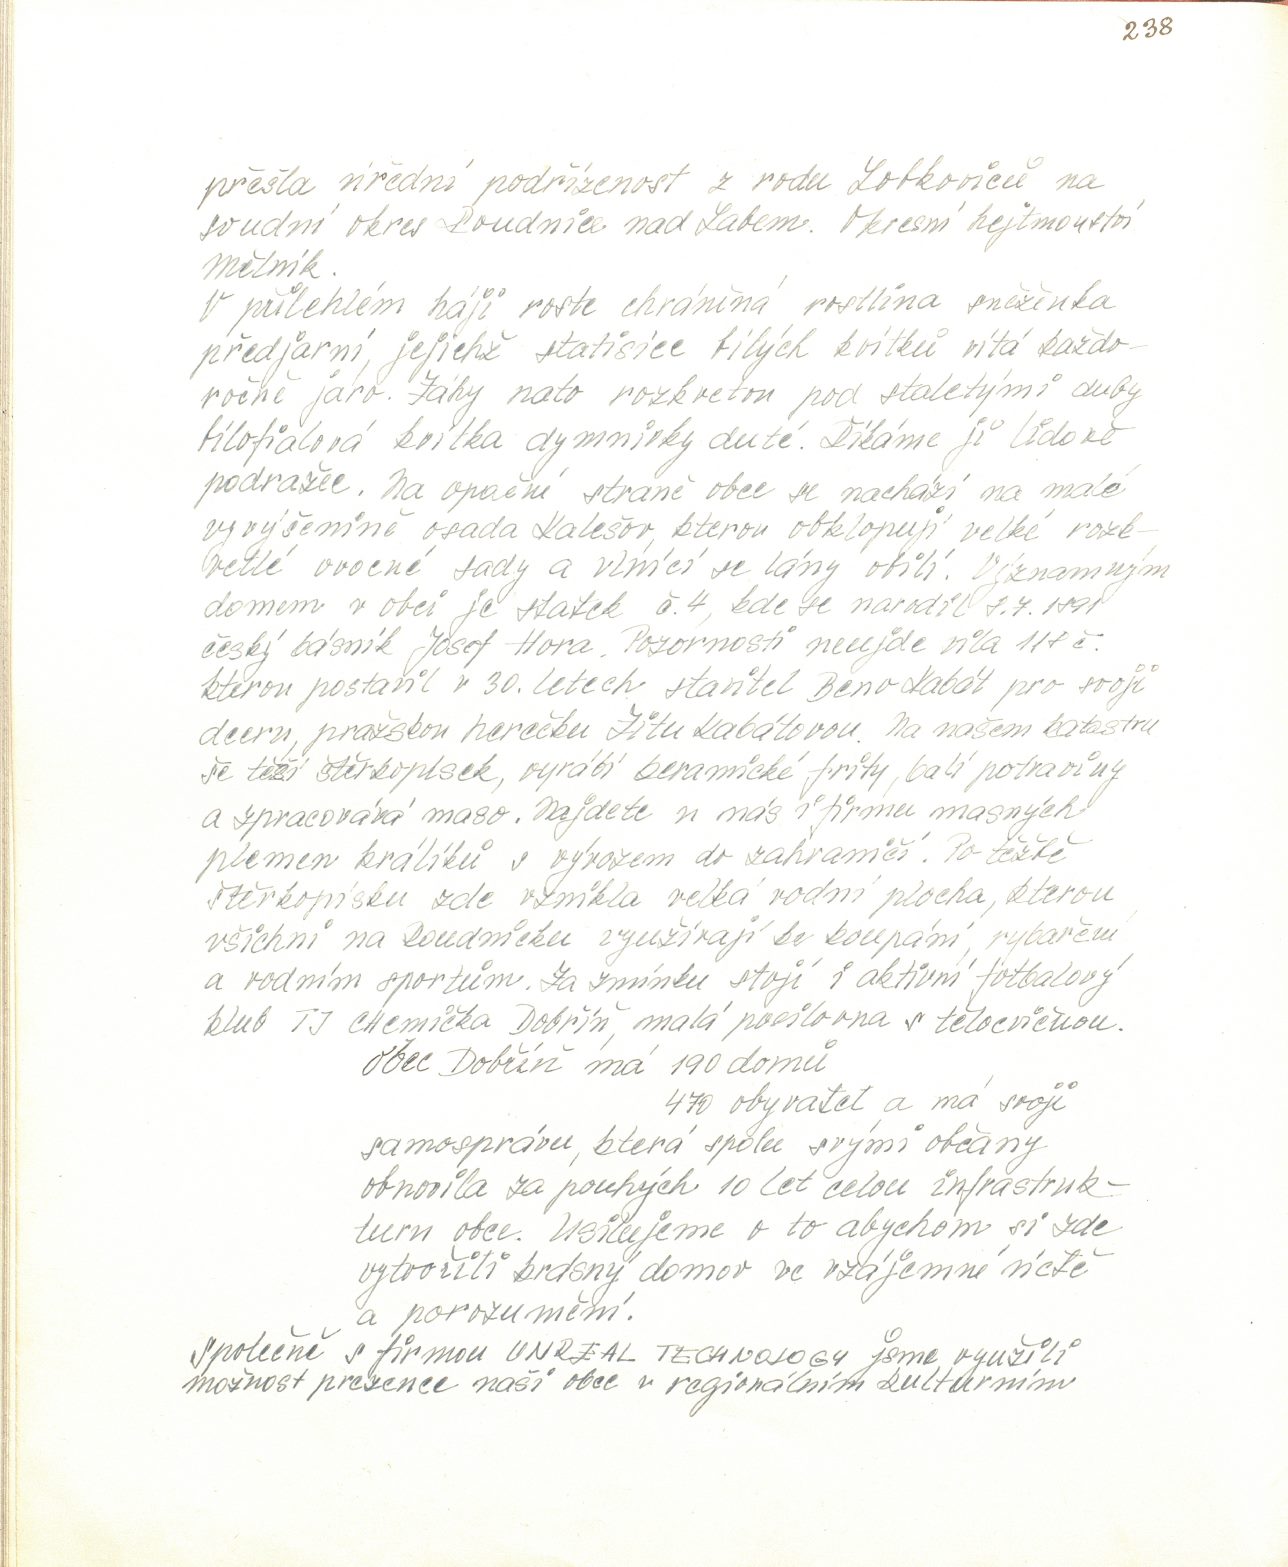 238
přešla úřední podřízenost z rodu Lobkoviců na
soudní okres Roudnice nad Labem. Okresní hejtmanství
Mělník.
V přilehlém háji roste chráněná rostlina sněženka
předjarní, jejichž statisíce bílých kvítků vítá každo-
ročně jaro. Záhy nato rozkvetou pod staletými duby
bílofialová kvítka dymnivky duté. Říkáme jí lidově
podražec. Na opační straně obce se nachází na malé
vyvýšenině osada Kalešov, kterou obklopují velké rozk-
vetlé ovocné sady a vlnící se lány obilí. Významným
domem v obci je statek č. 4, kde se narodil 8.7. 1891
český básník Josef Hora. Pozornosti neujde vila 117 č.
kterou postavil v 30. letech stavitel Beno Kabát pro svoji
dceru, pražskou herečku Zitu Kabátovou. Na našem katastru
se těží štěrkopísek, vyrábí keramické frity, balí potraviny
a zpracovává maso. Najdete u nás i firmu masných
plemen králíků s vývozem do zahraničí. Po těžbě
štěrkopísku zde vznikla velká vodní plocha, kterou
všichni na Roudnicku využívají ke koupání, rybaření
a vodním sportům. Za zmínku stojí i aktivní fotbalový
klub TJ Chemička Dobříň, malá posilovna s tělocvičnou.
Obec Dobříň má 190 domů
470 obyvatel a má svoji
samosprávu, která spolu svými občany
obnovila za pouhých 10 let celou infrastruk-
turu obce. Usilujeme o to abychom si zde
vytvořili krásný domov ve vzájemné úctě
a porozumění.
Společně s firmou UNREAL TECHNOLOGY jsme využili
možnost prezence naší obce v regionálním kulturním